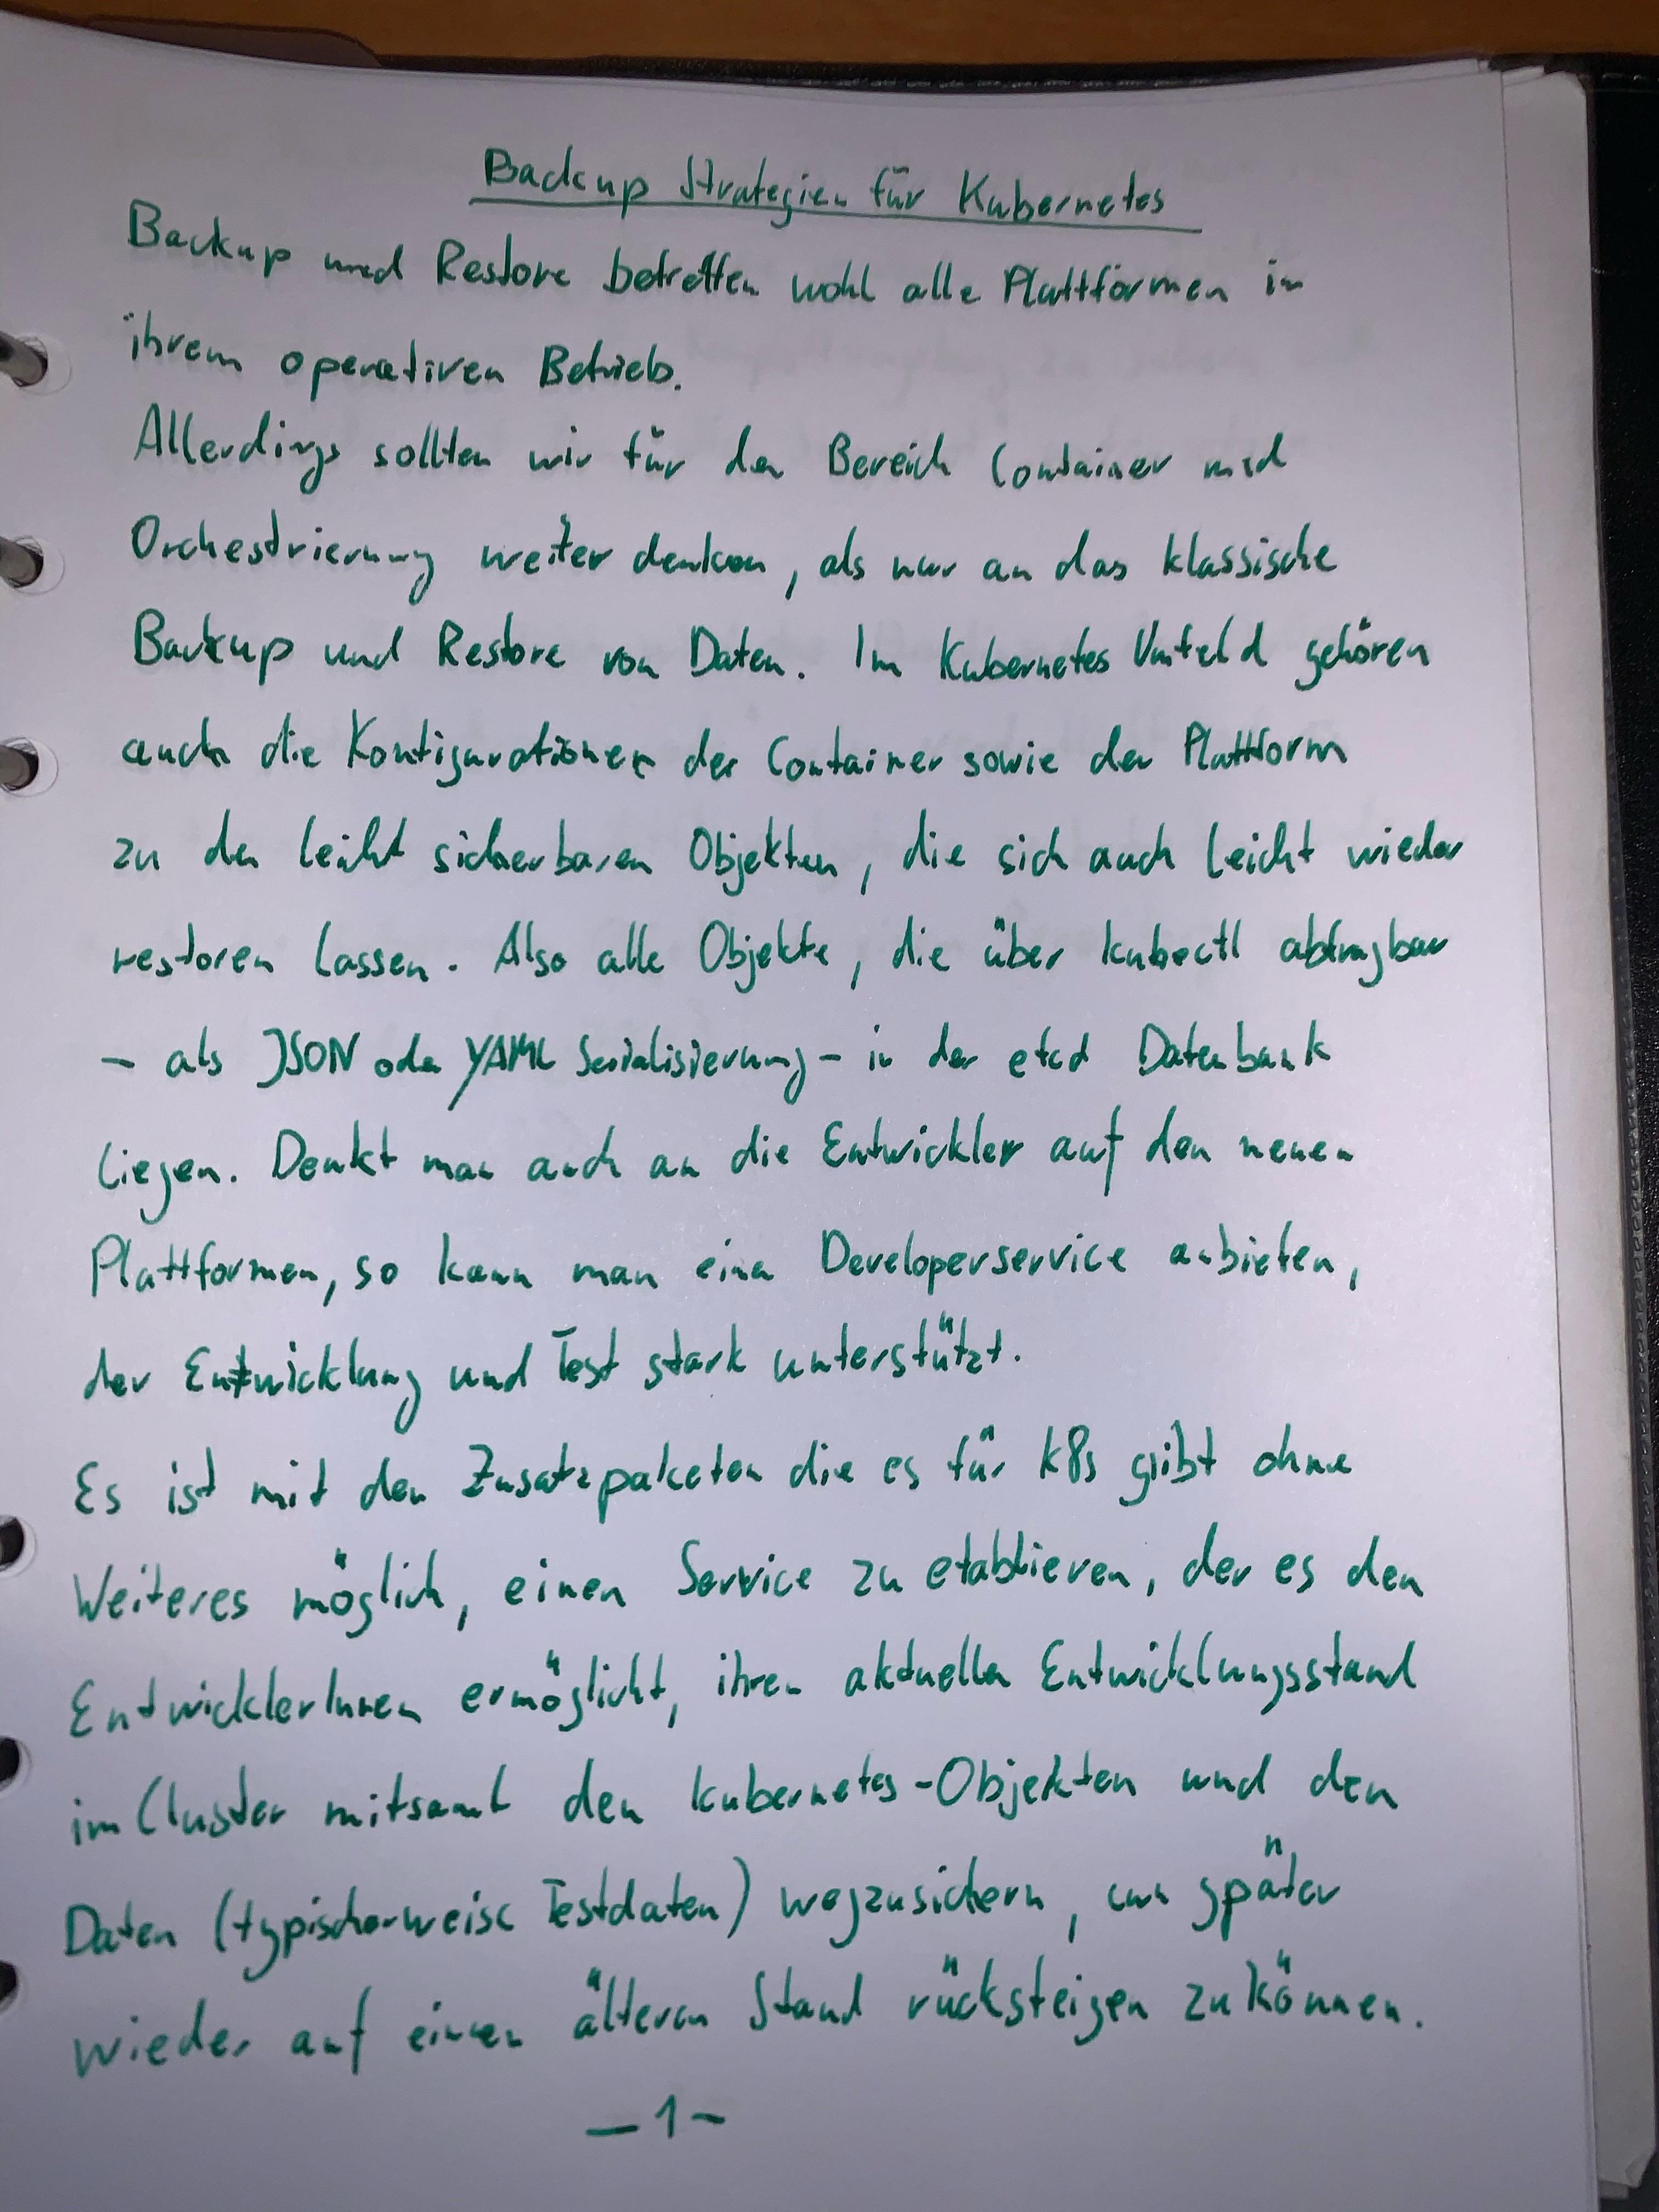 Backup Strategien für Kubernetes
Backup und Restore betreffen wohl alle Plattformen in
ihrem operativen Betrieb.
Allerdings sollten wir für den Bereich Container und
Orchestrierung weiter denken, als nur an das klassische
Backup und Restore von Daten. Im Kubernetes Umfeld gehören
auch die Konfigurationen der Container sowie der Plattform
zu den leicht sicherbaren Objekten, die sich auch leicht wieder
restoren lassen. Also alle Objekte, die über kubectl abfragbar
- als JSON oder YAML Serialisierung - in der etcd Datenbank
liegen. Denkt man auch an die Entwickler auf den neuen
Plattformen, so kann man einen Developerservice anbieten,
der Entwicklung und Test stark unterstützt.
Es ist mit den Zusatzpaketen die es für K8s gibt ohne
Weiteres möglich, einen Service zu etablieren, der es den
EntwicklerInnen ermöglicht, ihren aktuellen Entwicklungsstand
im Cluster mitsamt den Kubernetes-Objekten und den
Daten (typischerweise Testdaten) wegzusichern, um später
wieder auf einen älteren Stand rücksteigen zu können.
- 1 -